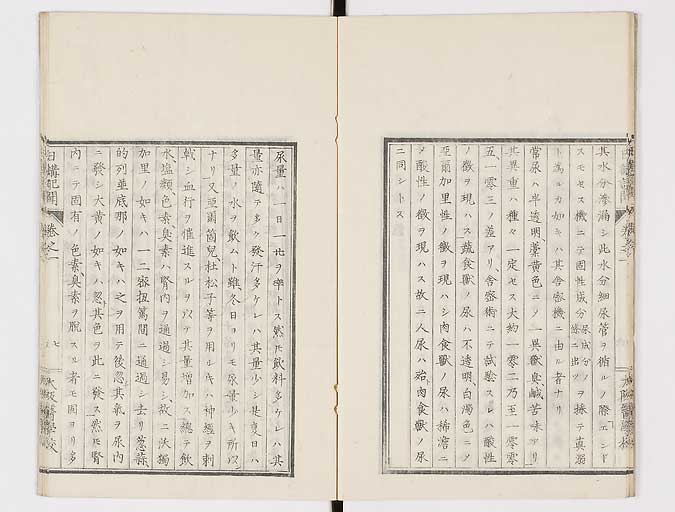 其水分滲漏シ此水分細尿管ヲ循ルノ際エンド
スモセス機ニテ固性成分尿成分ノ際ニ出ツヲ採テ真溺
ト為ルカ如キハ其舎密機ニ由ル者ナリ
常尿ハ半透明藁黄色ニノ一異獣臭鹹苦味アリ
其異重ハ種々一定セス大約一零二乃至一零零
五一零三ノ差アリ舎密術ニテ試験スレハ酸性
ノ徴ヲ現ハス蔬食獣ノ尿ハ不透明白濁色ニノ
亜爾加里性ノ徴ヲ現ハシ肉食獣ノ尿ハ稀澹ニ
ノ酸性ノ徴ヲ現ハス故ニ人尿ハ殆肉食獣ノ尿
ニ同シトス
尿量ハ一日一
ヲ率トス然𪜈飲料多ケレハ其
量亦随テ多ク發汗多ケレハ其量少シ是夏日ハ
多量ノ水ヲ飲ムト雖冬日ヨリモ尿量少キ所以
ナリ又亜爾箇兒杜松子等ヲ用ルキハ神経ヲ刺
戟シ血行ヲ催進スルヲ以テ其量増加ス總テ飲
水塩類色素臭素ハ腎内ヲ通過シ易シ故ニ沃獨
加里ノ如キハ一二密扭篤間ニ通過シ去リ葱蒜
的列並底那ノ如キハ之ヲ用テ後忽其氣ヲ尿内
ニ發シ大黄ノ如キハ忽其色ヲ此ニ發ス然𪜈腎
内ニテ固有ノ色素臭素ヲ脱スル者モ固ヨリ多
日講記聞
巻之一
七
大阪醫學校